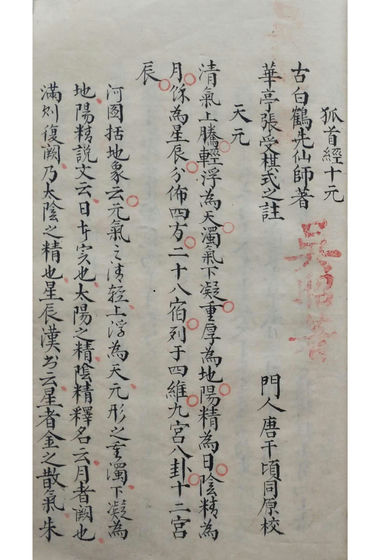 狐首經十元
古白鶴先仙師著
華亭張受棋式之註
門人唐千頃同原校
天元
清氣上騰輕浮為天濁氣下凝重厚為地陽精為日陰精為
月係為星辰分佈四方二十八宿列于四維九宮八卦十二宮
辰
河圖括地象云元氣之清輕上浮為天元形之重濁下凝為
地陽精說文云日寔也太陽之精陰精釋名云月者闕也
滿則復闕乃太陰之精也星辰漢書云星者金之散氣朱